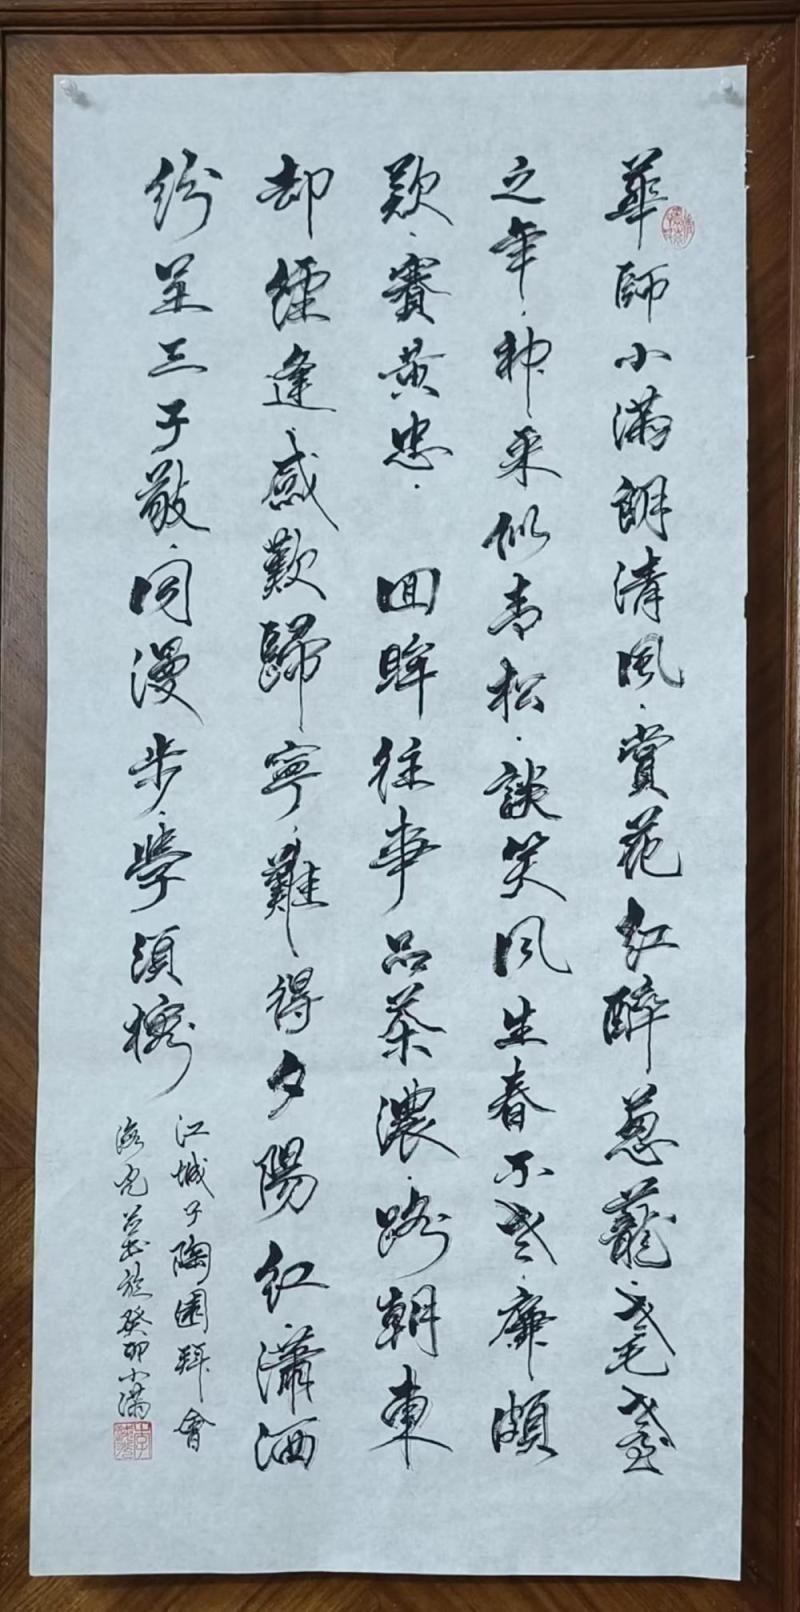 華師小滿朗清風賞花紅醉蔥蘢耄耋
之年神采似青松談笑風生春不老廉頗
歎賽黃忠 回眸往事品茶濃路朝東
却逢感歎歸寧難得夕陽紅瀟洒
紛呈三子敬同漫步學須
江城子陶園拜會
並書於癸卯小滿